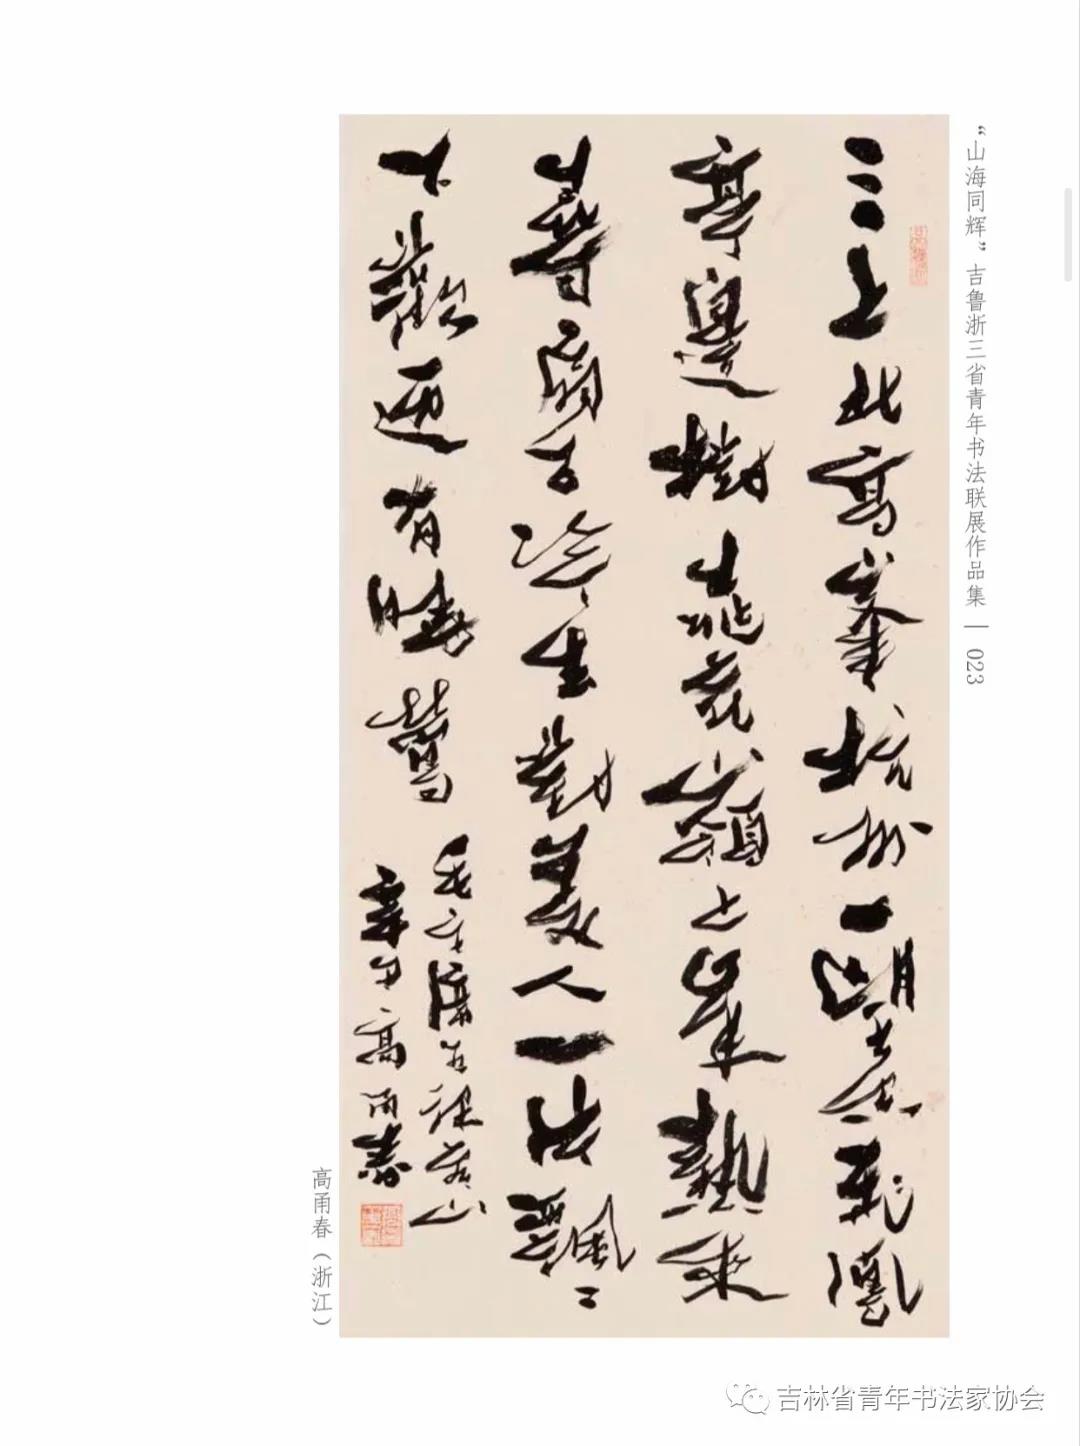 “山海同辉”吉鲁浙三省青年书法联展作品集 | 023
三上北高峯杭州一望空飛鳳
亭邊樹桃花嶺上熱來
尋扇子冷去對美人一片飄〻
下歡迎有晚鶯
毛主席五律看山
辛丑高甬春
高甬春（浙江）
吉林省青年书法家协会